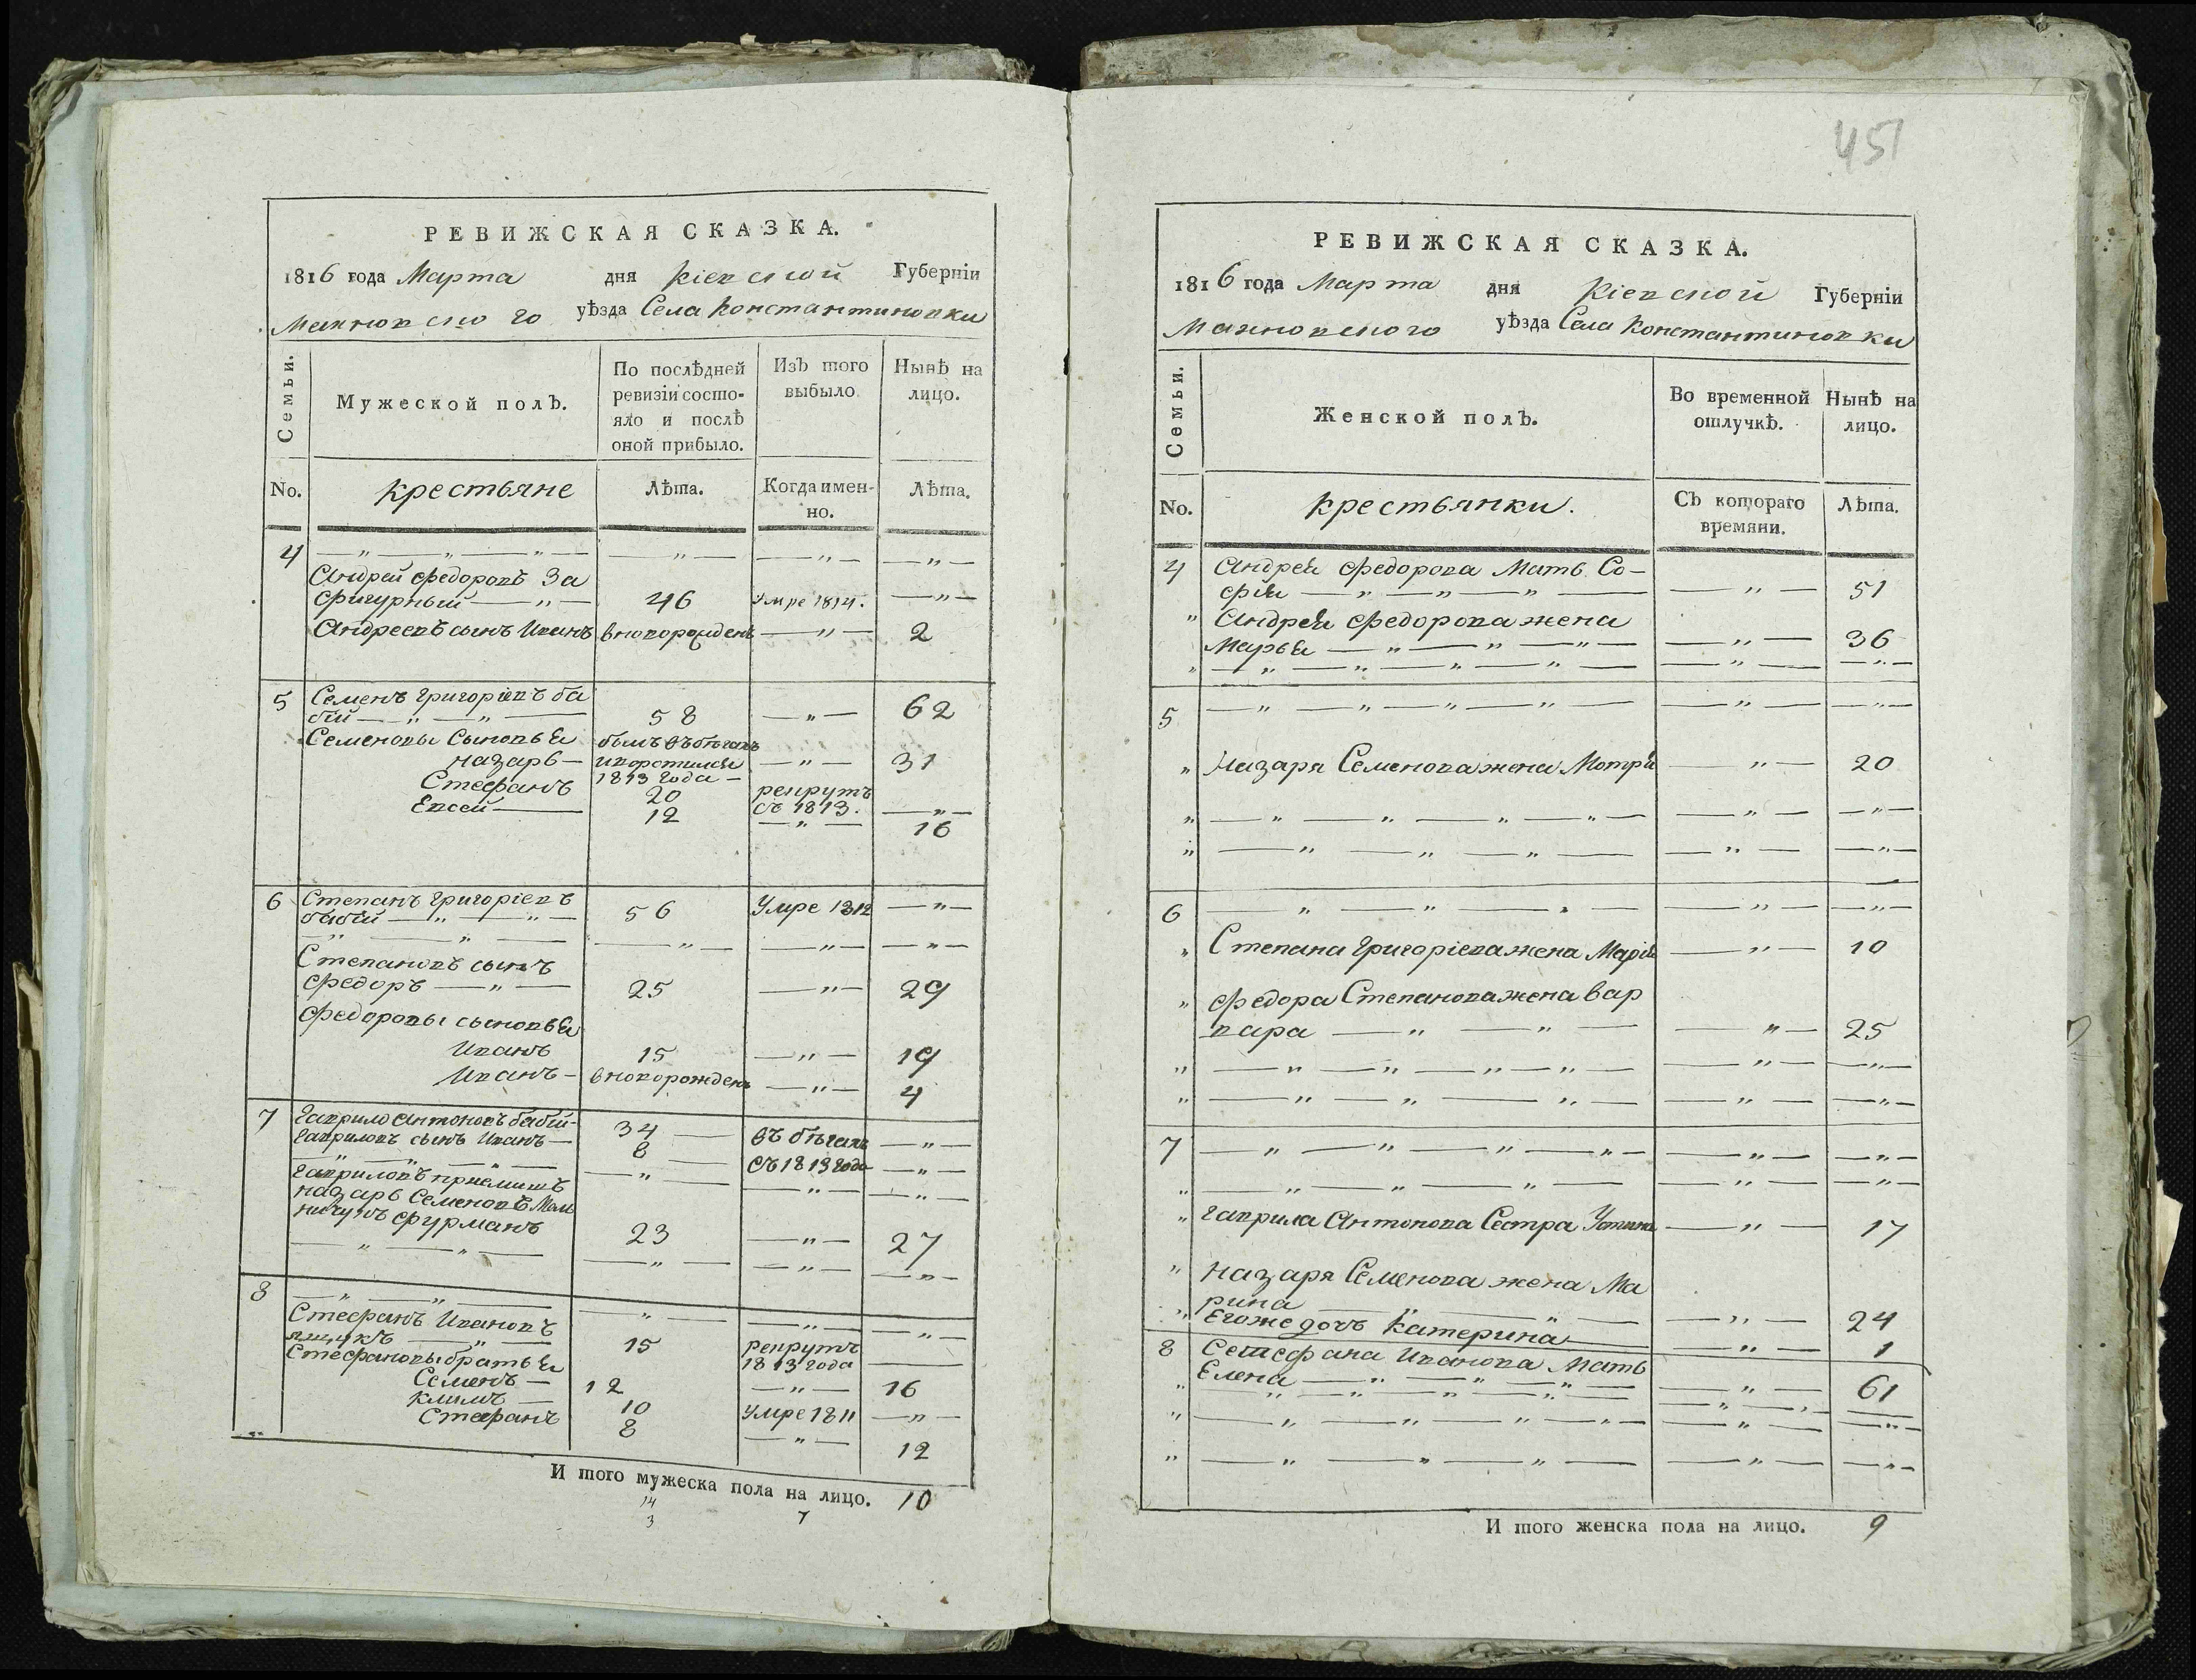 РЕВИЖСКАЯ СКАЗКА.
1816 года Марта дня Кіевской Губерніи
Махновского уѣзда Села Константиновки
Семьи. Мужеской полъ. По послѣдней ревизіи состояло и послѣ оной прибыло. Изъ того выбыло Нынѣ на лицо.
No. Крестьяне Лѣта. Когда именно. Лѣта.
4 — „ — „ — „ — — „ — — „ — — „ —
Андрей Федоровъ За
фигурный — „ — 46 Умре 1814. — „ —
Андреевъ сынъ Иванъ вноворожденъ — „ — 2
5 Семенъ Григоріевъ ба
бій — „ — „ — 58 — „ — 62
Семеновы Сыновья былъ въ бѣгахъ
Назарь — — „ — 31
Стефанъ 1813 года —
20 рекрутъ
Евсей — 12 съ 1813. — „ —
— „ — 16
6 Степанъ Григоріевъ
бабій — „ — „ — 56 Умре 1812 — „ —
— „ — „ — — „ — — „ — — „ —
Степановъ сынъ
Федоръ — „ — 25 — „ — 29
Федоровы сыновья
Иванъ 15 — „ — 19
Иванъ — вноворожденъ — „ — 4
7 Гаврило Антоновъ бабій — 34 — въ бѣгахъ — „ —
Гавриловъ сынъ Иванъ — 8 — съ 1813 года — „ —
— „ — „ — „ — — „ — — „ — — „ —
Гавриловъ приемишъ
Назарь Семеновъ
Фурманъ 23 — „ — 27
— „ — „ — — „ — — „ — — „ —
8 — „ — „ — — „ — — „ — — „ —
Стефанъ Ивановъ
ящукъ — „ — 15 рекрутъ
Стефановы братья 1813 года —
Семенъ — 12 — „ — 16
Климъ — 10 Умре 1811 — „ —
Стефанъ 8 — „ — 12
И того мужеска пола на лицо. 10
14
3 7
451
РЕВИЖСКАЯ СКАЗКА.
1816 года Марта дня Кіевской Губерніи
Махновского уѣзда Села Константиновки
Семьи. Женской полъ. Во временной отлучкѣ. Нынѣ на лицо.
No. Крестьянки. Съ котораго времяни. Лѣта.
4 Андрея Федорова Мать Со-
фія — „ — „ — „ — — „ — 51
„ Андрея Федорова жена
Марья — „ — „ — „ — — „ — 36
„ — „ — „ — „ — „ — — „ — — „ —
5 — „ — „ — „ — „ — — „ — — „ —
„ Назаря Семенова жена Мотря — „ — 20
„ — „ — „ — „ — „ — — „ — — „ —
„ — „ — „ — „ — — „ — — „ —
6 — „ — „ — „ — — „ — — „ —
„ Степана Григоріева жена Марія — „ — 10
„ Федора Степанова жена Вар
вара — „ — „ — „ — 25
„ — „ — „ — „ — „ — — „ — — „ —
„ — „ — „ — „ — — „ — — „ —
7 — „ — „ — „ — „ — — „ — — „ —
„ — „ — „ — „ — — „ — — „ —
„ Гаврила Антонова Сестра Устина — „ — 17
„ Назаря Семенова жена Ма
рина — „ — „ — — „ — 24
„ Егоже дочь Катерина — — „ — 1
8 Сетефана Иванова Мать
Елена — „ — „ — „ — — „ — 61
„ „ — „ — „ — „ — — „ — „ —
„ — „ — „ — „ — „ — — „ — — „ —
„ — „ — „ — „ — — „ — — „ —
И того женска пола на лицо. 9